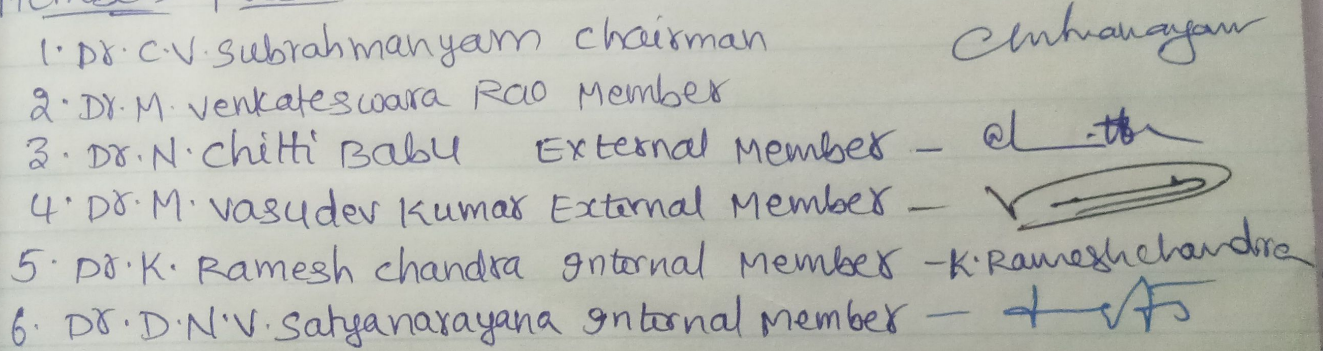 1. Dr. C.V. Subrahmanyam Chairman
2. Dr. M. Venkateswara Rao Member
3. Dr. N. Chitti Babu External Member -
4. Dr. M. Vasudev Kumar External Member -
5. Dr. K. Ramesh chandra Internal Member - K. Rameshchandra
6. Dr. D.N.V. Satyanarayana Internal Member -